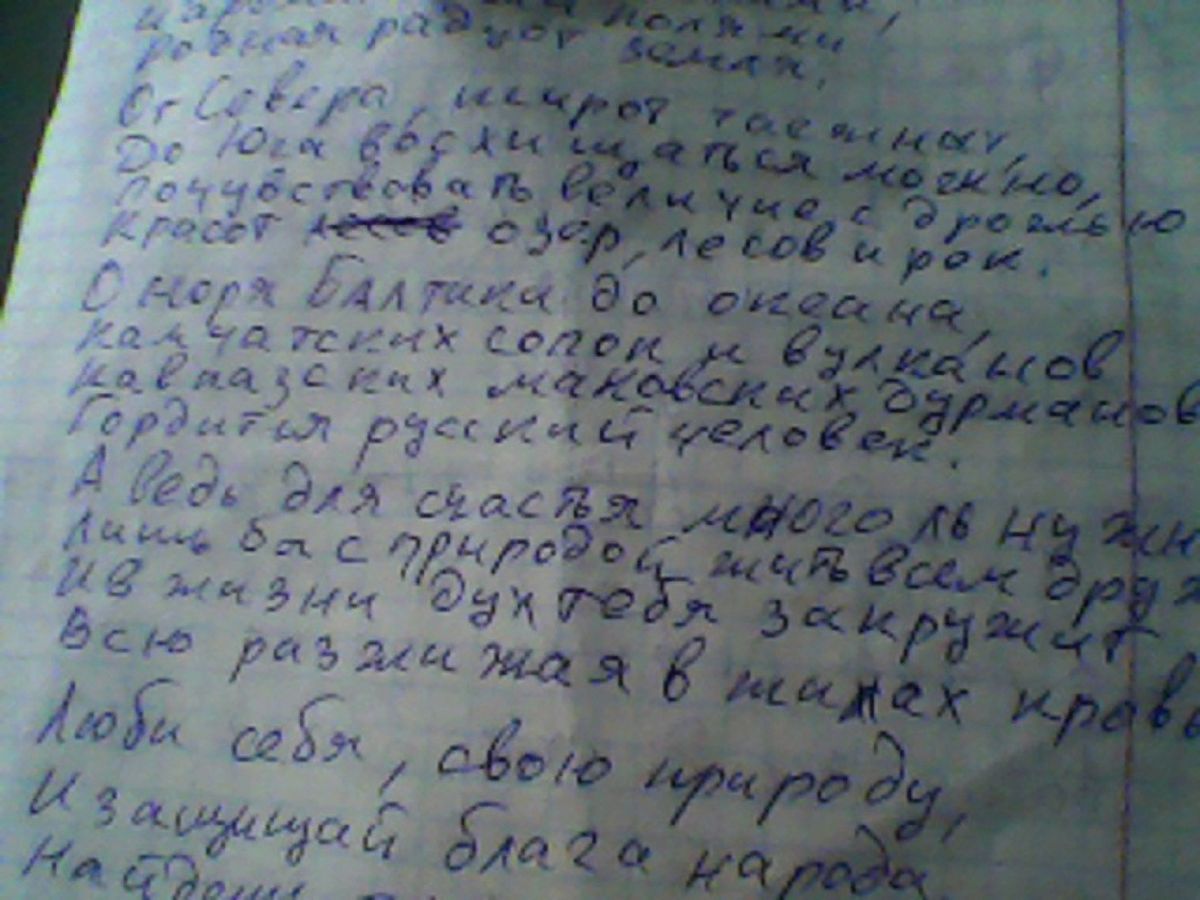 полями
родная радует земля.
От Севера, широт таежных,
До Юга восхищаться можно,
почувствовать величие с дрожью
красот озёр, лесов и рек.
О моря Балтики до океана,
камчатских сопок и вулканов
кавказских маковских дурманов
Гордится русский человек.
А ведь для счастья много ль нужн
лишь бы с природой жить всем друж
И в жизни дух тебя закружит
Всю разжижая в жилах кровь
Люби себя, свою природу,
И защищай блага народа
Найдешь